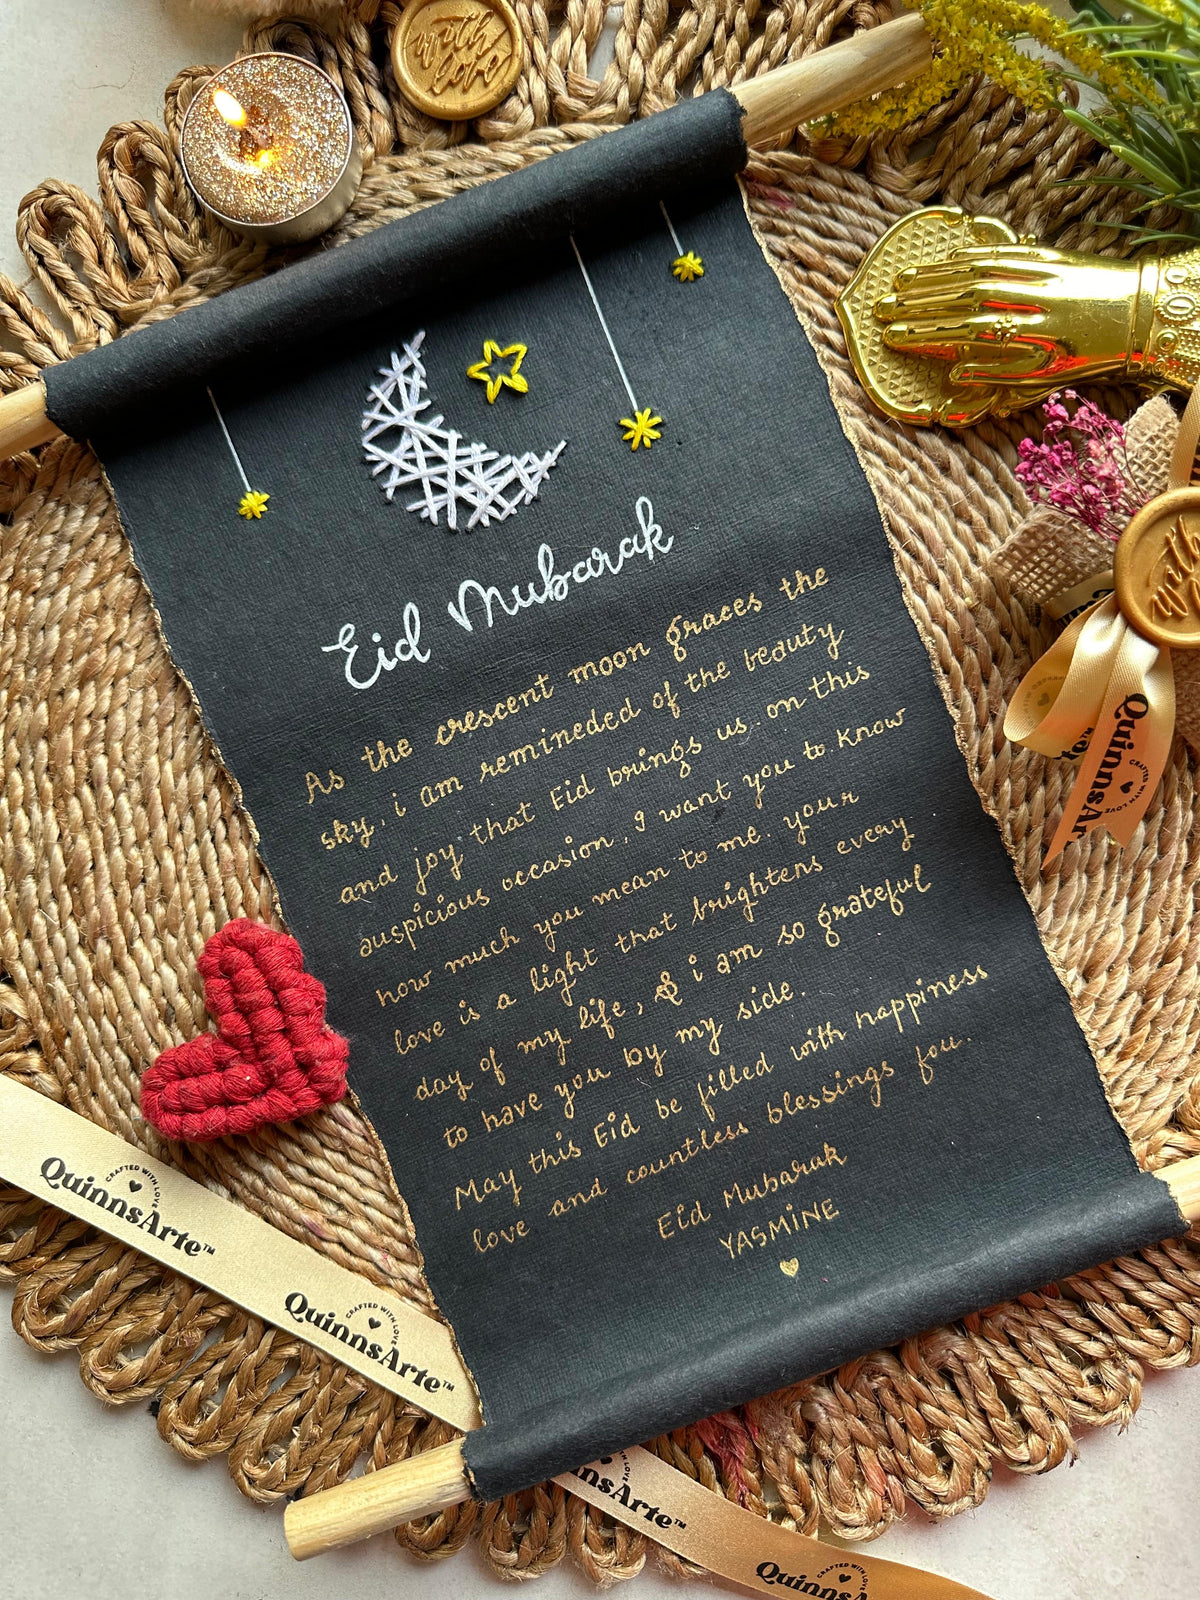 with
love
Eid Mubarak
As the crescent moon graces the
sky, i am remineded of the beauty
and joy that Eid brings us. on this
auspicious occasion, I want you to know
how much you mean to me. your
love is a light that brightens every
day of my life, & i am so grateful
to have you by my side.
May this Eid be filled with happiness
love and countless blessings fou.
Eid Mubarak
YASMINE
with
QuinnsA
CRAFTED WITH LOVE
CRAFTED WITH LOVE
QuinnsArte™
CRAFTED WITH LOVE
QuinnsArte™
nnsArte™
CRAFTED WITH LOVE
QuinnsA